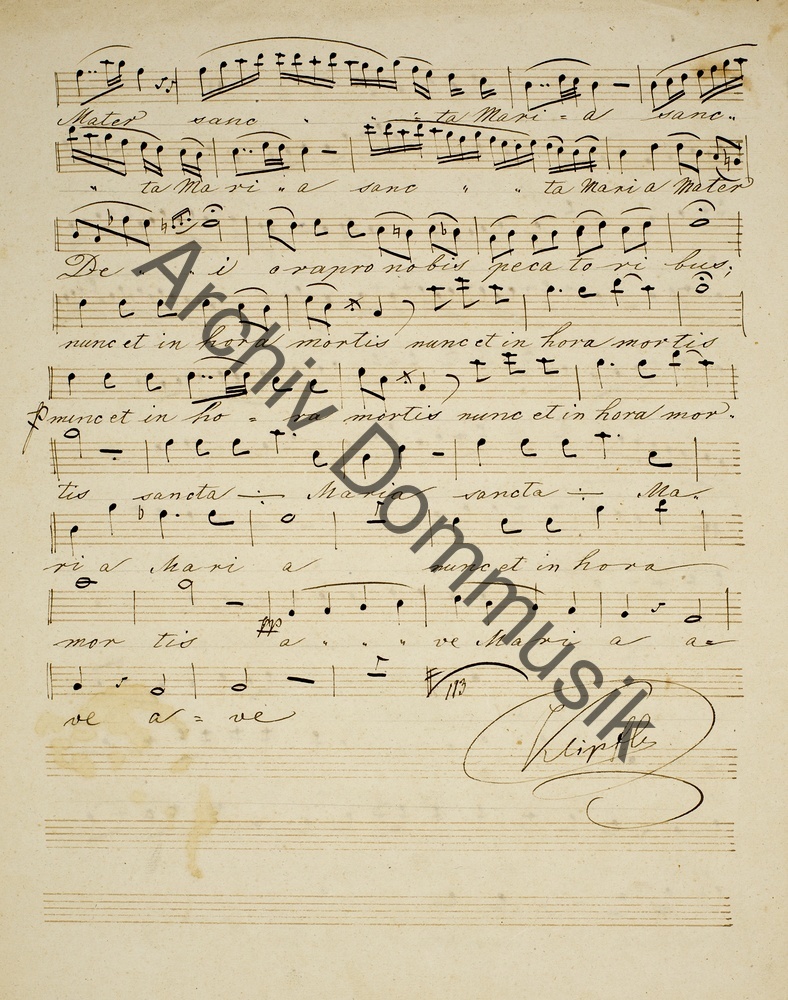 Mater sanc - - ta Mari = a sanc..
" ta Ma ri " a sanc " " ta Maria Mater
De " " i ora pro nobis peca to ri bus;
nunc et in hora mortis nunc et in hora mortis
p nunc et in ho = ra mortis nunc et in hora mor-
tis sancta ÷ Maria sancta ÷ Ma-
ri a Mari a nunc et in hora
mor tis pp a " " " ve Mari a a=
ve a = ve
113
Archiv Dommusik